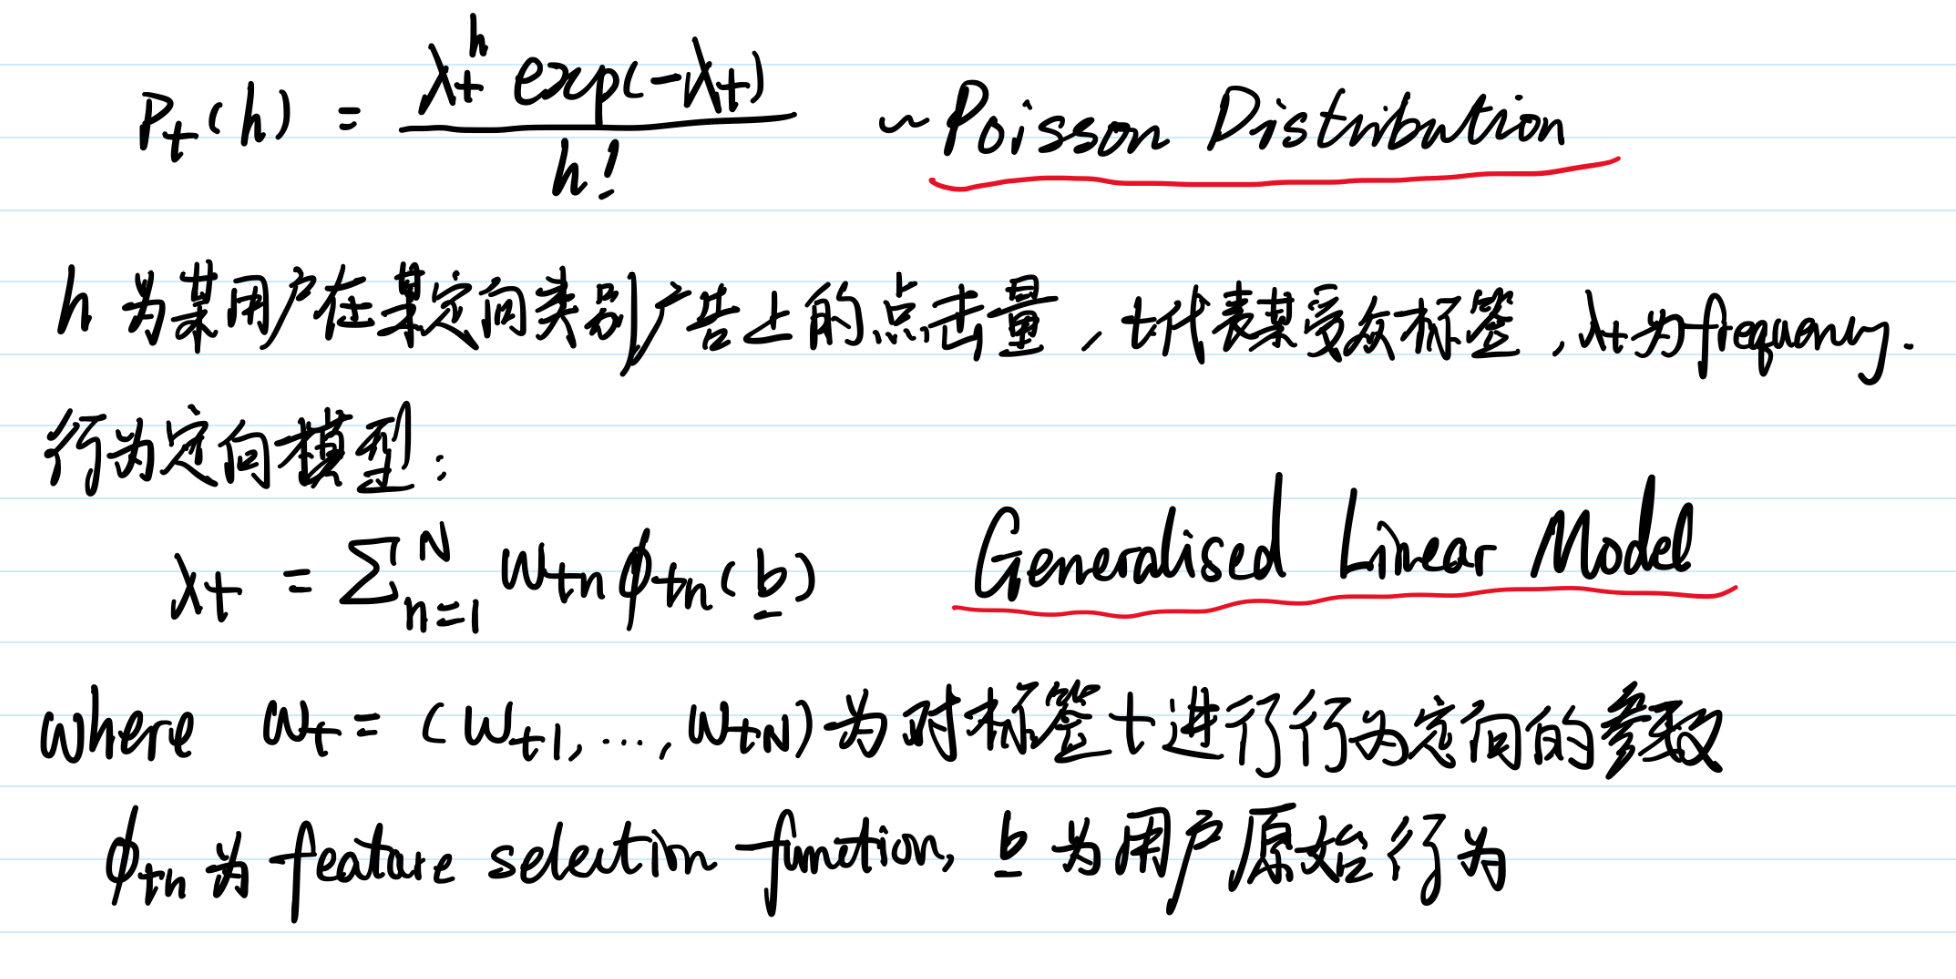 P_t(h) = λ_t^h exp(-λ_t) / h! ~ Poisson Distribution
h 为某用户在某定向类别广告上的点击量, t代表某受众标签, λ_t为frequency.
行为定向模型:
λ_t = ∑_{n=1}^N w_{tn} ϕ_{tn}(b) Generalised Linear Model
where w_t = (w_{t1}, ..., w_{tN})为对标签t进行行为定向的参数
ϕ_{tn} 为 feature selection function, b 为用户原始行为